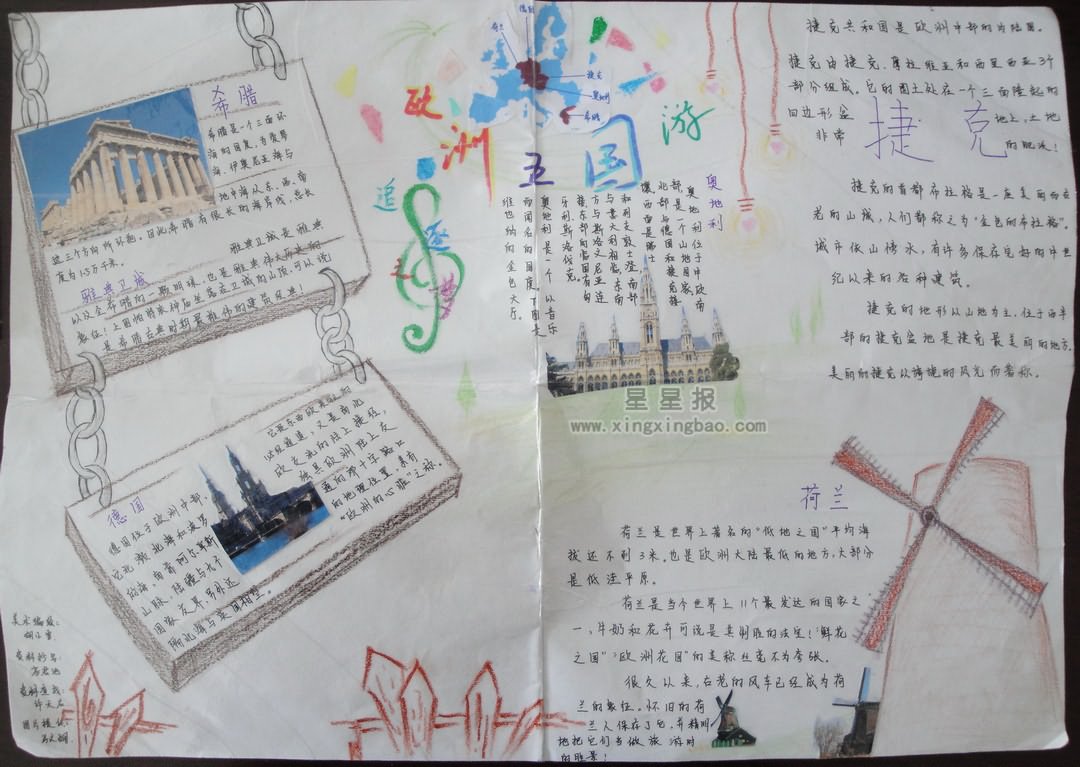 欧洲五国游
追逐之梦
捷克
奥地利
希腊
希腊
希腊是一个三面环
海的国家，为爱琴
海、伊奥尼亚海与
地中海从东、西、南
这三个方向所环抱。因此希腊有很长的海岸线，总长
度为1.5万千米。
雅典卫城
雅典卫城是雅典
以及全希腊的一颗明珠，也是雅典伟大历史的
象征！上图帕特农神庙坐落在卫城的山顶，可以说
是希腊古典时期最雄伟的建筑经典！
德国
德国位于欧洲中部，
它北濒北海和波罗
的海，南靠阿尔卑斯
山脉，陆疆与七个
国家 另外还
隔北海与英国相望。
它是东西欧来往的
必经通道，又是南北
欧交流的陆上捷径，
独具欧洲陆上交
通的那十字路口
的地理位置，素有
“欧洲的心脏”之称。
奥地利
奥地利位于中欧南
部，是一个山地国家，
北部与德国和捷克接
壤，西面是瑞士
和列支敦士登，南部
与意大利相邻，东南
方与斯洛文尼亚连
接，东部的临国有匈
牙利斯洛伐克。
奥地利是一个以音乐
而闻名的国度
维也纳的金色大厅。
捷克
捷克共和国是欧洲中部的内陆国。
捷克由捷克、摩拉维亚和西里西亚3个
部分组成。它的国土处在一个三面隆起的
四边形盆地上，土地
非常的肥沃！
捷克的首都布拉格是一座美丽而古
老的山城，人们都称之为“金色的布拉格”。
城市依山傍水，有许多保存完好的中世
纪以来的各种建筑。
捷克的地形以山地为主，位于西半
部的捷克盆地是捷克最美丽的地方。
美丽的捷克以旖旎的风光而着称。
星星报
www.xingxingbao.com
荷兰
荷兰是世界上著名的“低地之国”平均海
拔还不到3米。也是欧洲大陆最低的地方，大部分
是低洼平原。
荷兰是当今世界上11个最发达的国家之
一、牛奶和花卉可说是其制胜的法宝！“鲜花
之国”“欧洲花园”的美称丝毫不为夸张。
很久以来，古老的风车已经成为荷
兰的象征。怀旧的荷
兰人保存了它，并精明
地把它们当做旅游时
的胜景！
美术编辑：
资料抄写：
资料查找：
图片提供：